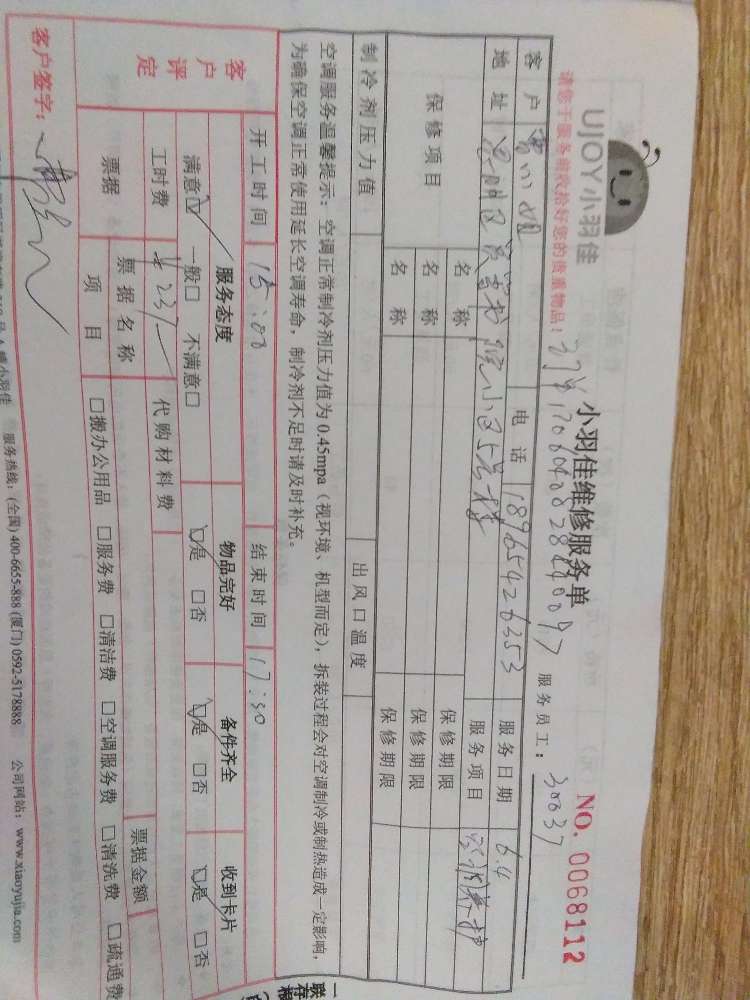 UJOY小羽佳
小羽佳维修服务单
NO. 0068112
请您于服务前收拾好您的贵重物品!
服务员工: 30037
客户 电话 18965426353 服务日期 6.4
地址 服务项目 空调养护
保修项目 名称 保修期限
名称 保修期限
名称 保修期限
制冷剂压力值 出风口温度
空调服务温馨提示:空调正常制冷剂压力值为0.45mpa(视环境、机型而定),拆装过程会对空调制冷或制热造成一定影响,
为确保空调正常使用延长空调寿命,制冷剂不足时请及时补充。
开工时间 15:00 结束时间 17:30
客户评定 服务态度 物品完好 备件齐全 收到卡片
满意☑ 一般□ 不满意□ ☑是 □否 ☑是 □否 ☑是 □否
工时费 ¥237 代购材料费
票据 票据名称 票据金额
项目 □搬办公用品 □服务费 □清洁费 □空调服务费 □清洗费 □疏通费
客户签字:
服务热线:(全国) 400-6655-888 (厦门) 0592-5178888 公司网站:www.xiaoyujia.com